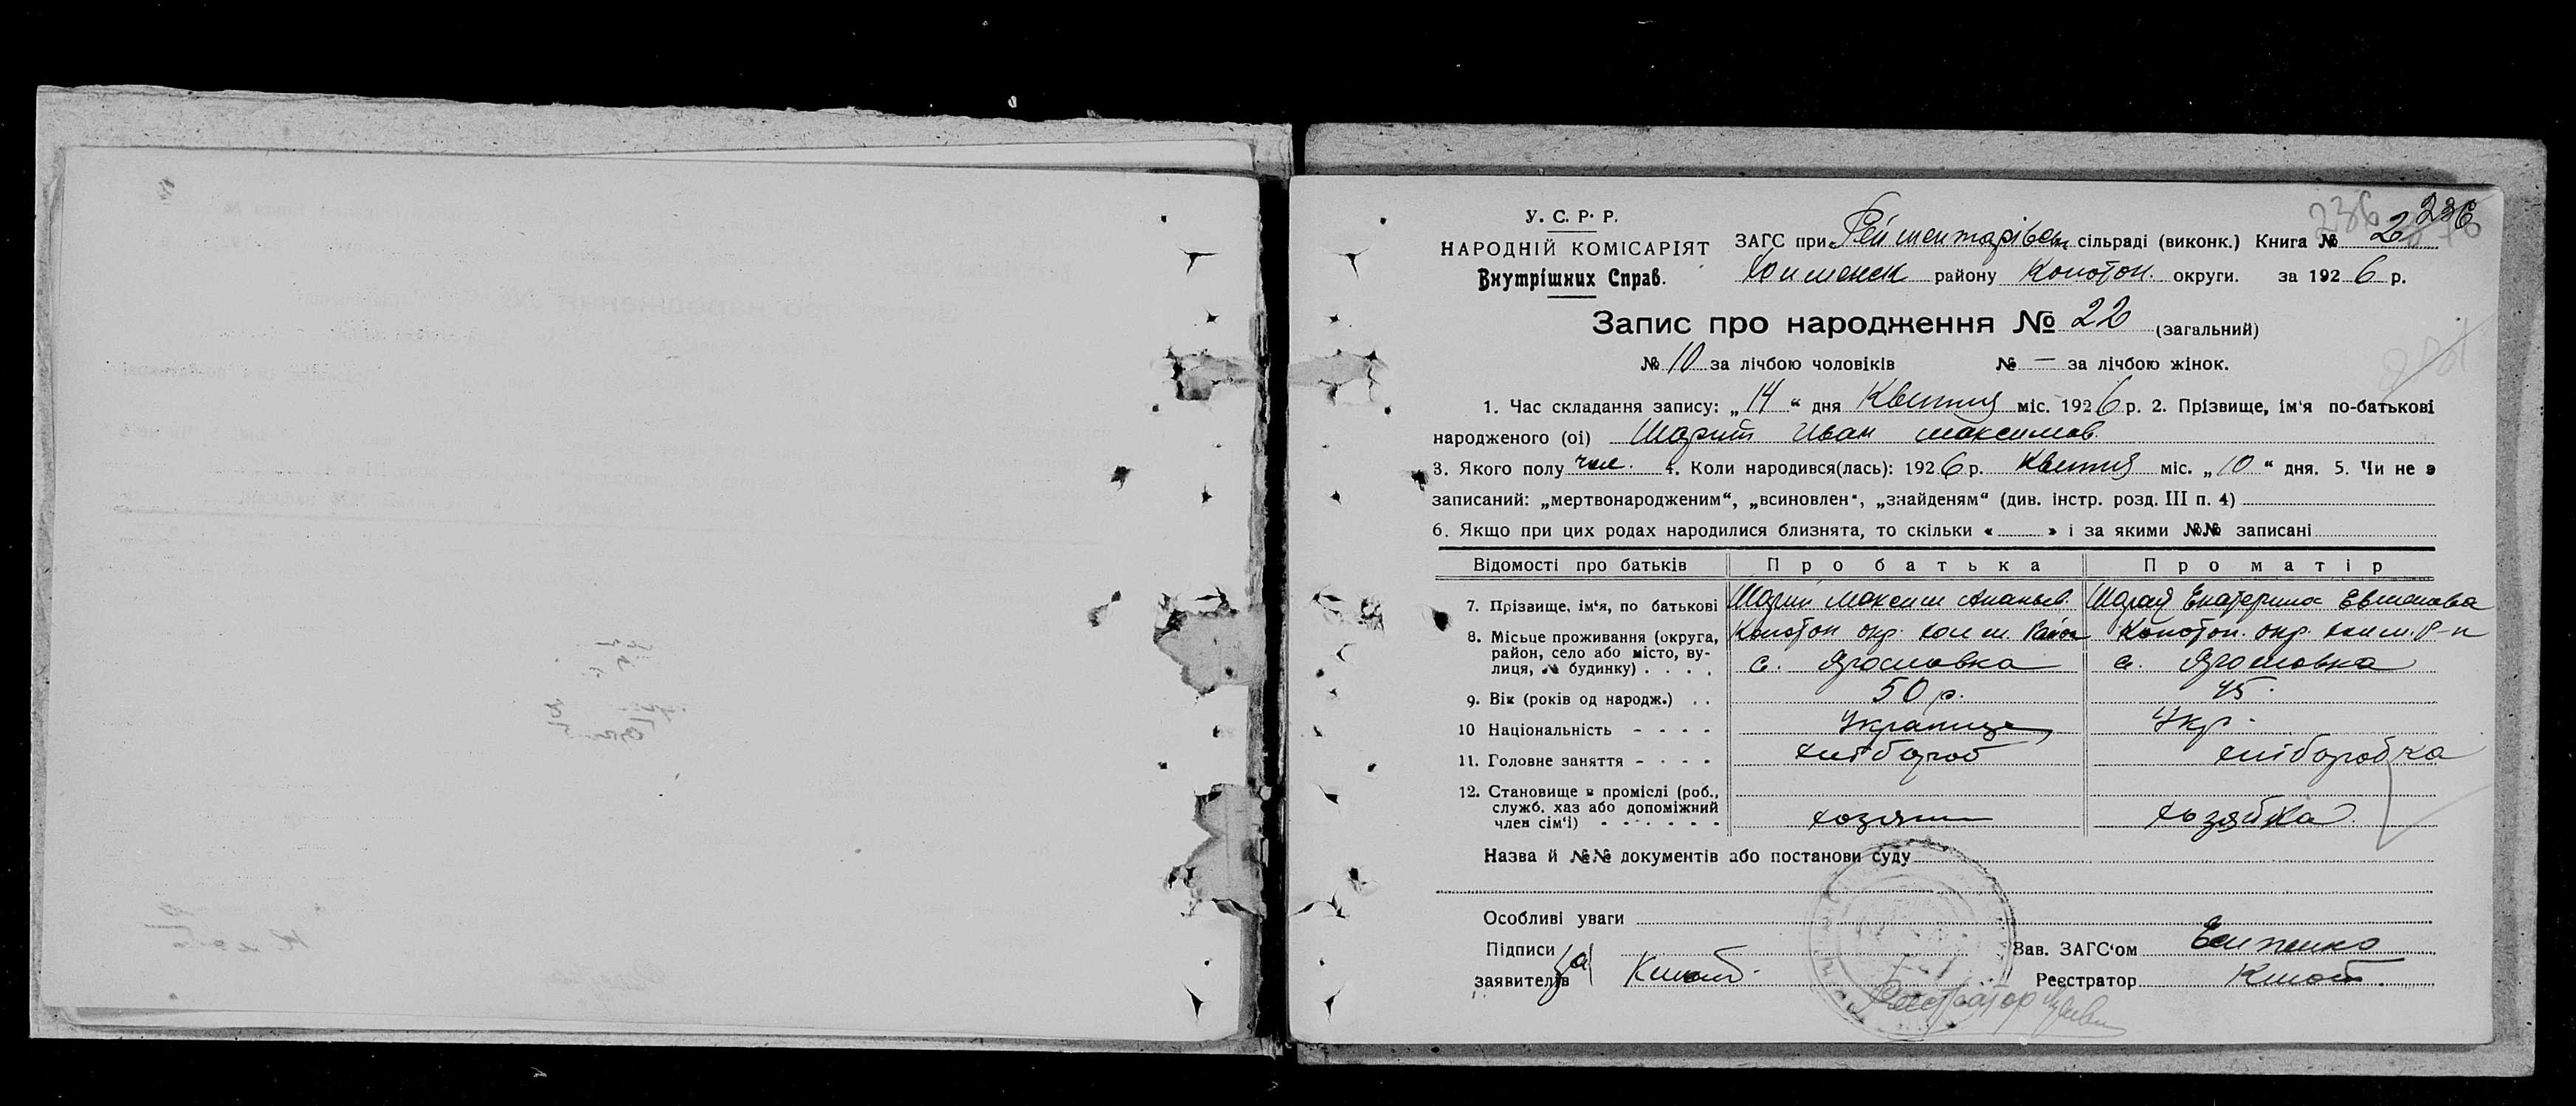 236 236
У. С. Р. Р.
НАРОДНІЙ КОМІСАРІЯТ
Внутрішних Справ.
ЗАГС при сільраді (виконк.) Книга № 2
району Конотоп. округи. за 1926 р.
Запис про народження № 22 (загальний)
№ 10 за лічбою чоловіків № — за лічбою жінок.
1. Час складання запису: „14“ дня Квітня міс. 1926 р. 2. Прізвище, ім'я по-батькові
народженого (оі) Иван Максимов.
3. Якого полу чол. 4. Коли народився(лась): 1926 р. Квітня міс. „10“ дня. 5. Чи не э
записаний: „мертвонародженим“, „всиновлен“, „знайденям“ (див. інстр. розд. III п. 4)
6. Якщо при цих родах народилися близнята, то скільки « » і за якими №№ записані
Відомості про батьків Про батька Про матір
7. Прізвище, ім'я, по батькові Максим Ананьев. Екатерина
8. Місьце проживання (округа, район, село або місто, вулиця, № будинку) Конотоп окр. Район Конотоп. окр. Р-н
с. Ярославка с. Ярославка
9. Вік (років од народж.) 50 р. 45.
10 Національність Укр.
11. Головне заняття хлібороб хліборобка
12. Становище в промислі (роб.,
служб. хаз або допоміжний
член сім'ї) хозяин хозяйка
Назва й №№ документів або постанови суду
Особливі уваги
Підписи Зав. ЗАГС'ом
заявителів Реєстратор